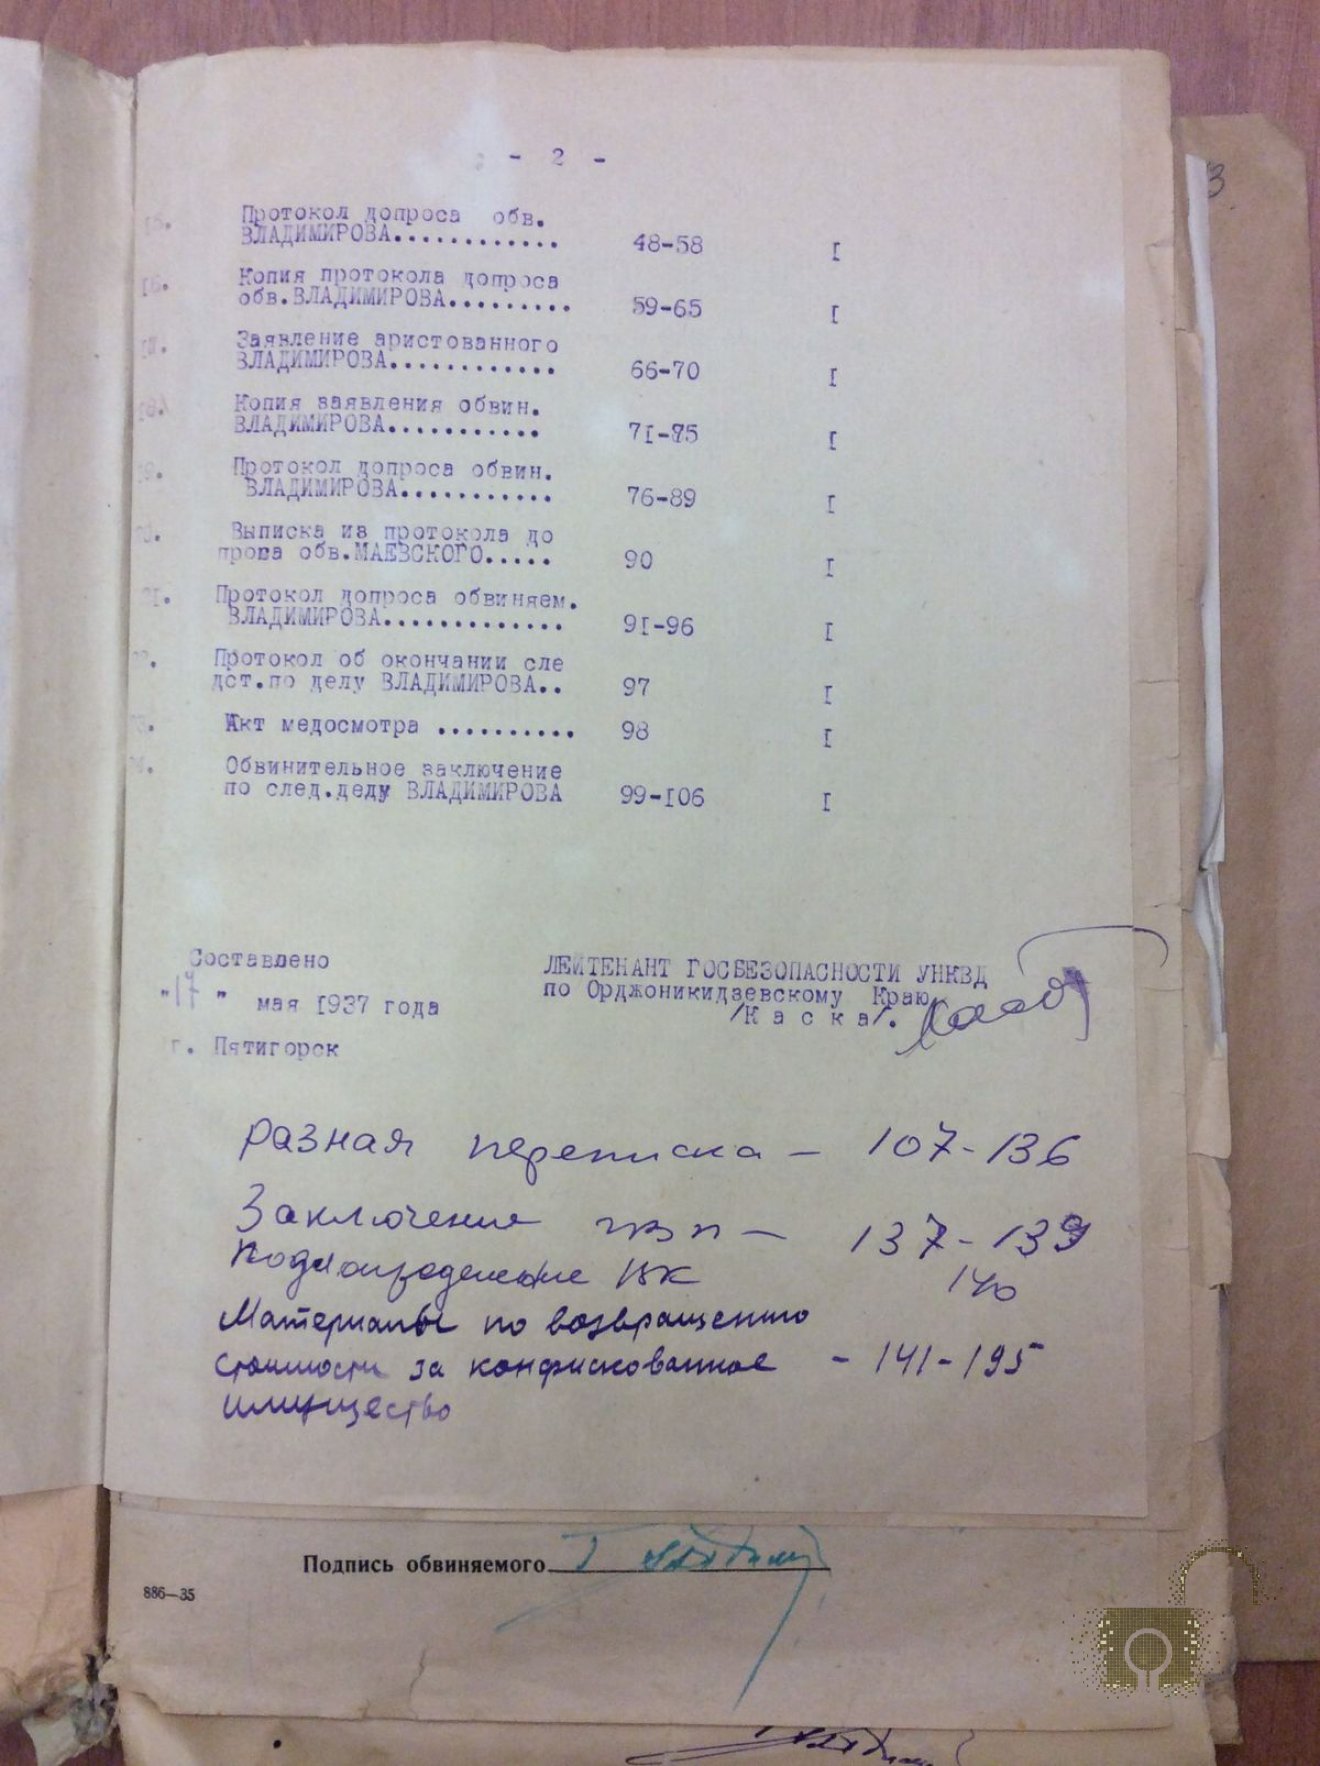 - 2 -
Протокол допроса обв.
ВЛАДИМИРОВА............ 48-58 I
Копия протокола допроса
обв.ВЛАДИМИРОВА......... 59-65 I
Заявление аристованного
ВЛАДИМИРОВА............ 66-70 I
Копия заявления обвин.
ВЛАДИМИРОВА........... 7I-75 I
Протокол допроса обвин.
ВЛАДИМИРОВА........... 76-89 I
Выписка из протокола до
проса обв.МАЕВСКОГО..... 90 I
Протокол допроса обвиняем.
ВЛАДИМИРОВА............. 9I-96 I
Протокол об окончании сле
дст.по делу ВЛАДИМИРОВА.. 97 I
Акт медосмотра .......... 98 I
Обвинительное заключение
по след.делу ВЛАДИМИРОВА 99-I06 I
Составлено
"17" мая I937 года
г. Пятигорск
ЛЕЙТЕНАНТ ГОСБЕЗОПАСНОСТИ УНКВД
по Орджоникидзевскому Краю
/К а с к а/.
Разная переписка - 107-136
Заключение ГВП - 137-139
ВК 140
Материалы по возвращению
стоимости за конфискованное - 141-195
имущество
Подпись обвиняемого
886—35